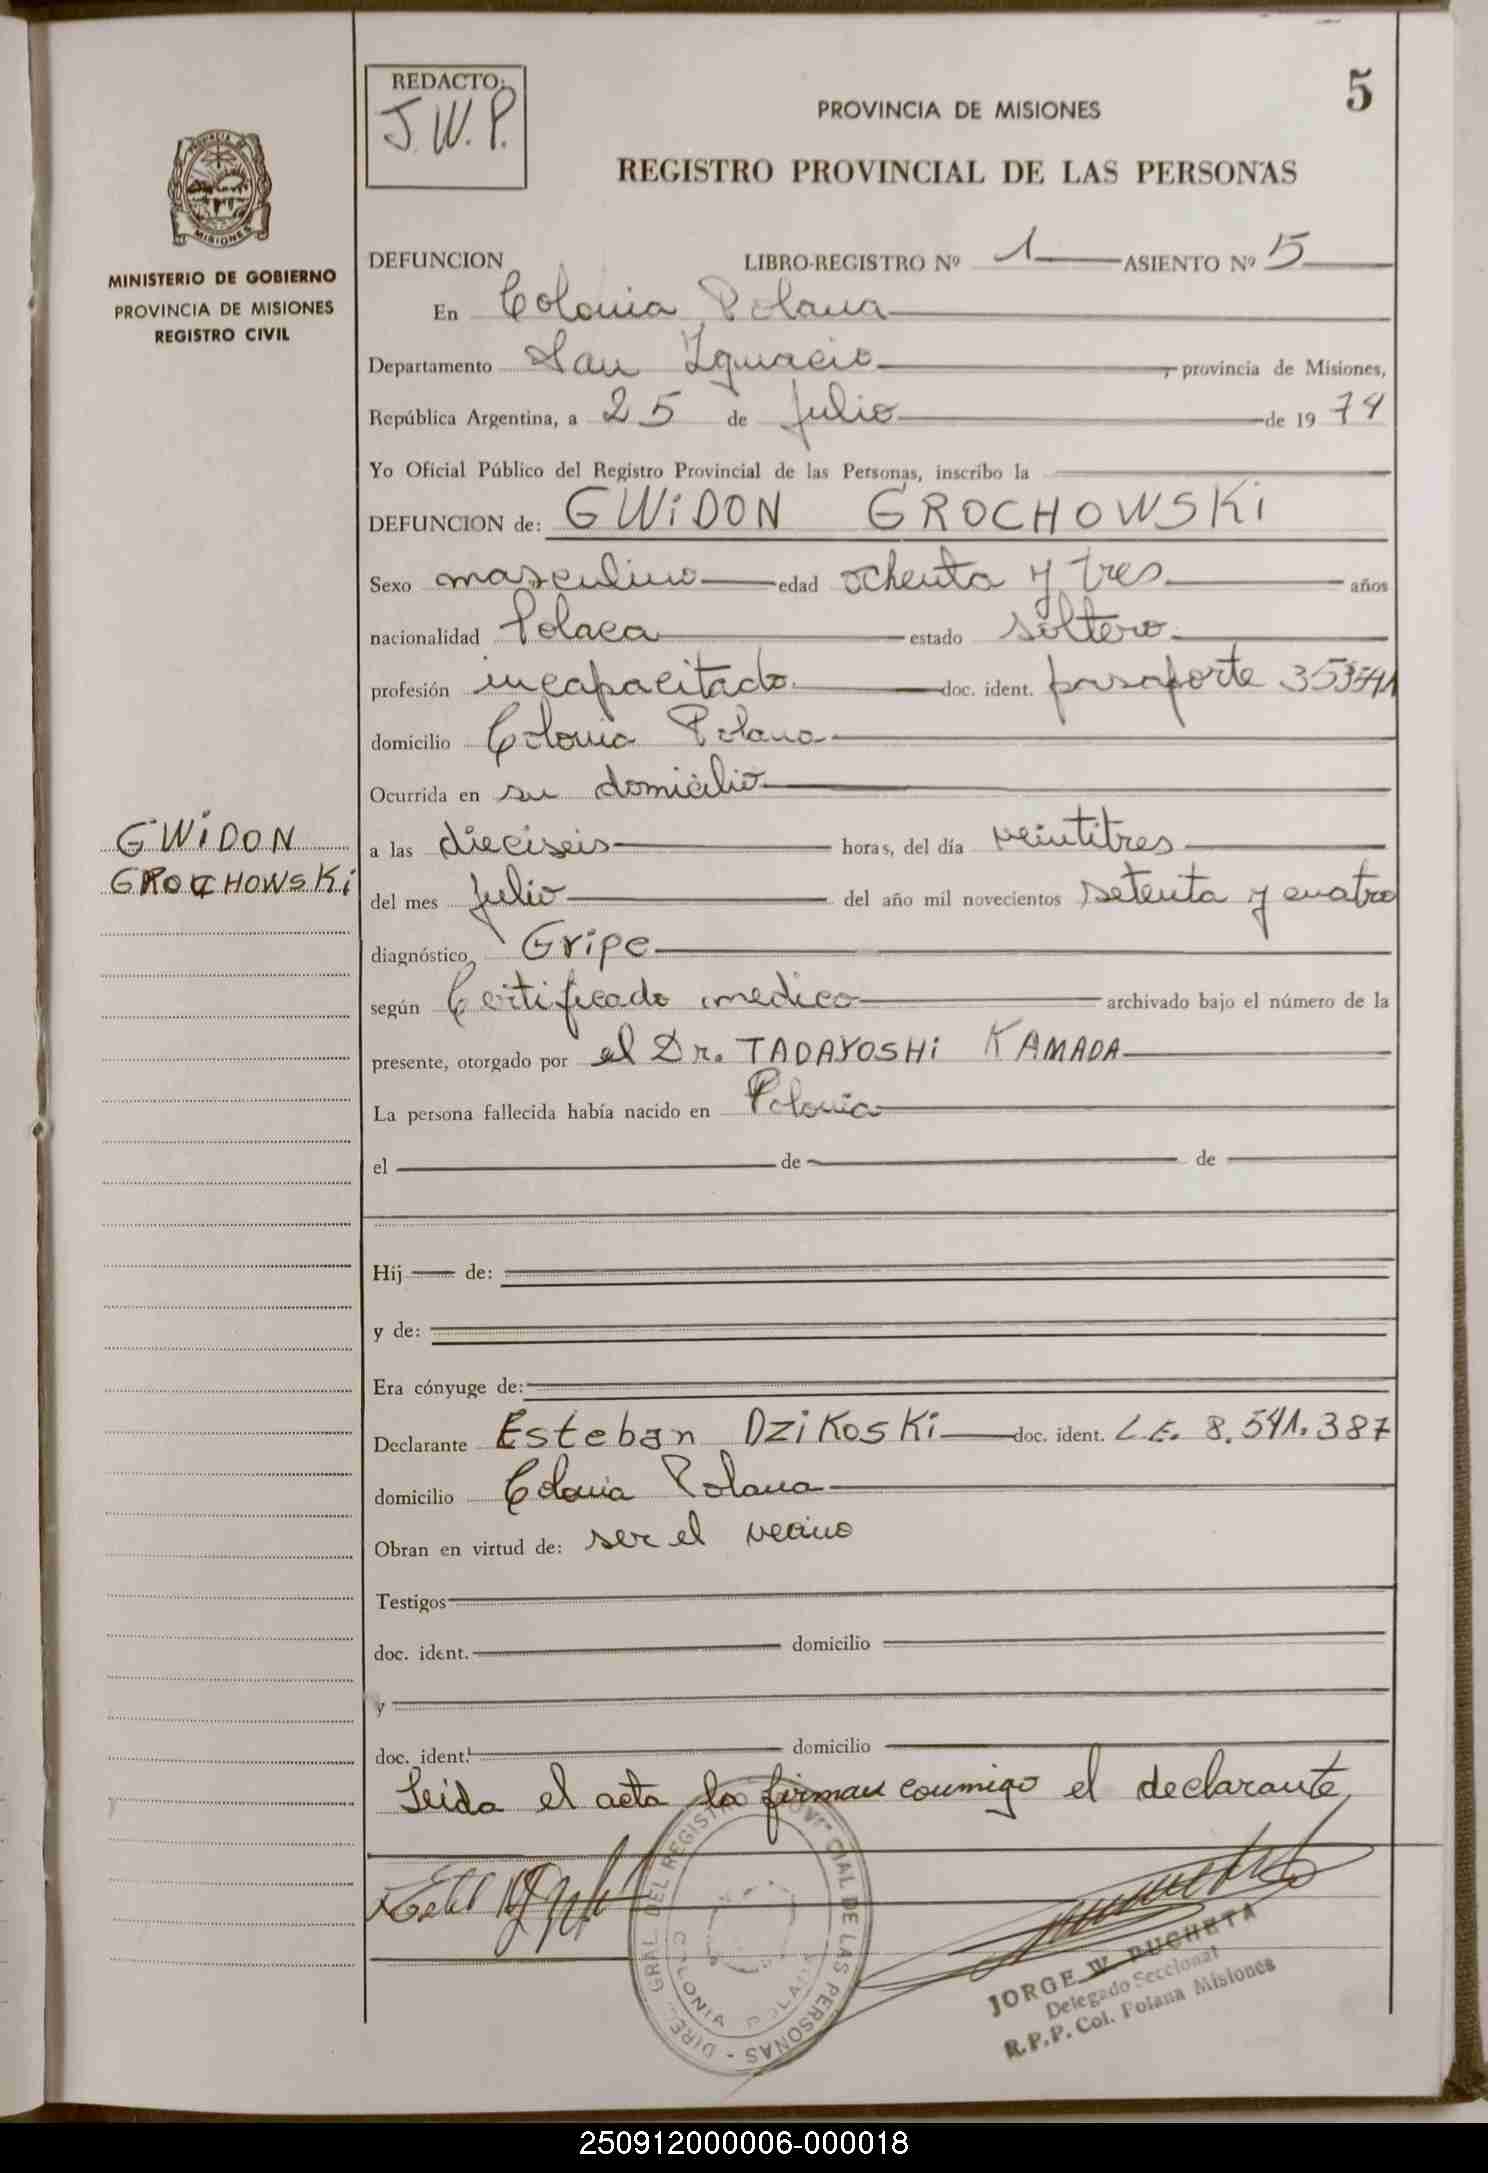 REDACTO:
J.W.P.
5
PROVINCIA DE MISIONES
REGISTRO PROVINCIAL DE LAS PERSONAS
PROVINCIA DE
MISIONES
MINISTERIO DE GOBIERNO
PROVINCIA DE MISIONES
REGISTRO CIVIL
DEFUNCION LIBRO-REGISTRO Nº 1 ASIENTO Nº 5
En Colonia Polana
Departamento San Ignacio, provincia de Misiones,
República Argentina, a 25 de Julio de 1974
Yo Oficial Público del Registro Provincial de las Personas, inscribo la
DEFUNCION de: GWIDON GROCHOWSKI
Sexo masculino edad ochenta y tres años
nacionalidad Polaca estado soltero
profesión incapacitado doc. ident. pasaporte 353541
domicilio Colonia Polana
Ocurrida en su domicilio
GWIDON
GROCHOWSKI
a las dieciseis horas, del día veintitres
del mes Julio del año mil novecientos setenta y cuatro
diagnóstico Gripe
según Certificado medico archivado bajo el número de la
presente, otorgado por el Dr. TADAYOSHI KAMADA
La persona fallecida había nacido en Polonia
el de de
Hij de:
y de:
Era cónyuge de:
Declarante Esteban DZIKOSKI doc. ident. L.E. 8.541.387
domicilio Colonia Polana
Obran en virtud de: ser el vecino
Testigos
doc. ident. domicilio
y
doc. ident. domicilio
Leida el acta la firman conmigo el declarante
DIREC. GRAL. DEL REGISTRO PROVINCIAL DE LAS PERSONAS -
COLONIA POLANA
JORGE W. PUCHETA
Delegado Seccional
R.P.P. Col. Polana Misiones
250912000006-000018